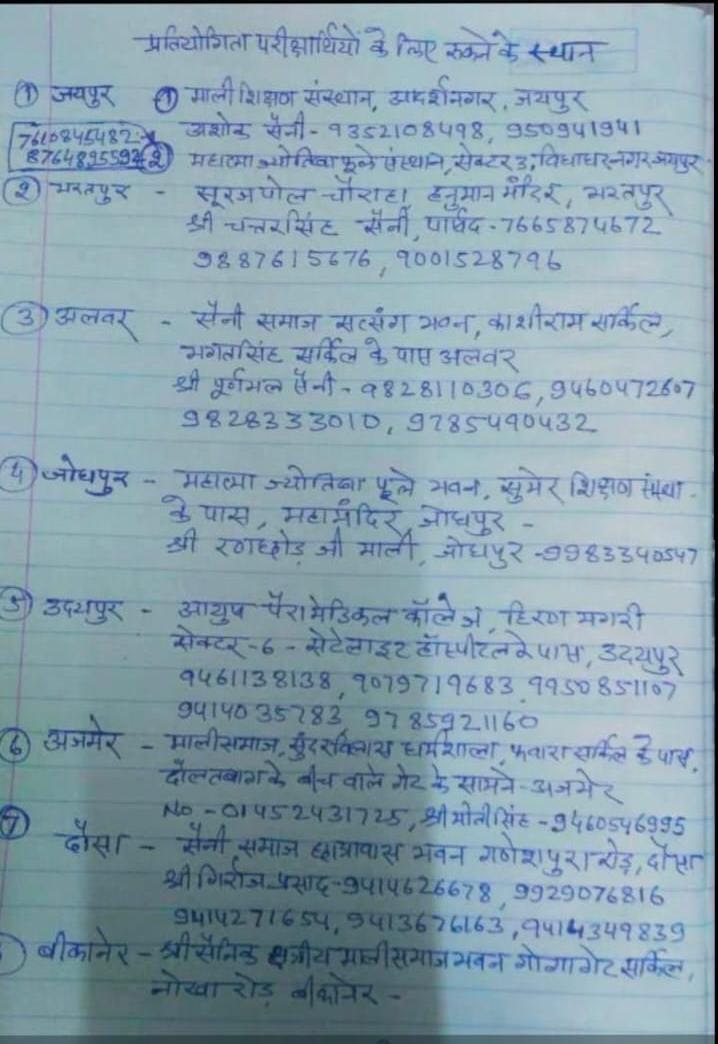 प्रतियोगिता परीक्षार्थियों के लिए रुकने के स्थान
① जयपुर ① माली शिक्षण संस्थान, आदर्शनगर, जयपुर
अशोक सैनी - 9352108498, 950941941
7610845482
8764895592 ② महात्मा ज्योतिबा फूले संस्थान, सेक्टर 3, विद्याधर नगर जयपुर
② भरतपुर - सूरजपोल चौराहा हनुमान मंदिर, भरतपुर
श्री चत्तरसिंह सैनी, पार्षद - 7665874672
9887615676, 9001528796
③ अलवर - सैनी समाज सत्संग भवन, काशीराम सर्किल,
भगतसिंह सर्किल के पास अलवर
श्री पूर्णमल सैनी - 9828110306, 9460472607
9828333010, 9785490432
④ जोधपुर - महात्मा ज्योतिबा फूले भवन, सुमेर शिक्षण संस्था
के पास, महामंदिर, जोधपुर -
श्री रणछोड़ जी माली, जोधपुर - 9983340547
⑤ उदयपुर - आयुष पैरामेडिकल कॉलेज, हिरण मगरी
सेक्टर-6 - सेटेलाइट हॉस्पीटल के पास, उदयपुर
9461138138, 9079719683, 9950851107
9414035783, 9785921160
⑥ अजमेर - माली समाज, सुंदरविलास धर्मशाला, फवारा सर्किल के पास,
दौलतबाग के बीच वाले गेट के सामने - अजमेर
No - 01452431725, श्री मोतीसिंह - 9460546995
⑦ दौसा - सैनी समाज छात्रावास भवन गणेशपुरा रोड़, दौसा
श्री गिर्राज प्रसाद - 9414626678, 9929076816
9414271654, 9413676163, 9414349839
बीकानेर - श्री सैनिक क्षत्रीय माली समाज भवन गोगागेट सर्किल,
नोखा रोड़ बीकानेर -